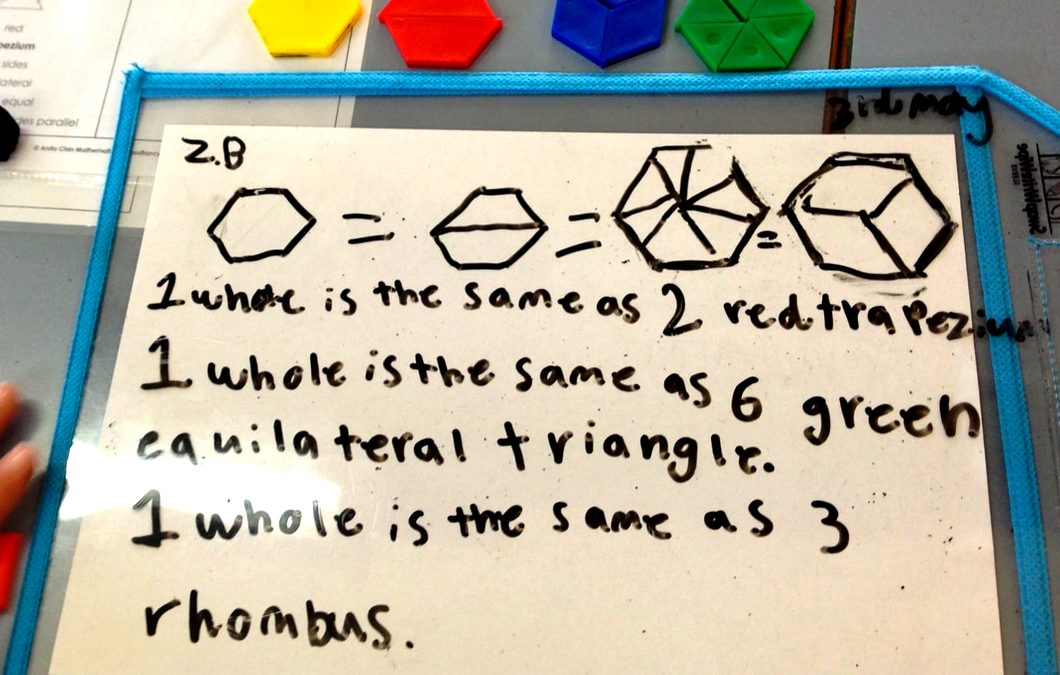 red
pezium
sides
lateral
equal
des parallel
© Anita Chin Mathematics
3rd may
2.B
= = =
1 whole is the same as 2 red trapezium
1 whole is the same as 6 green
equilateral triangle.
1 whole is the same as 3
rhombus.